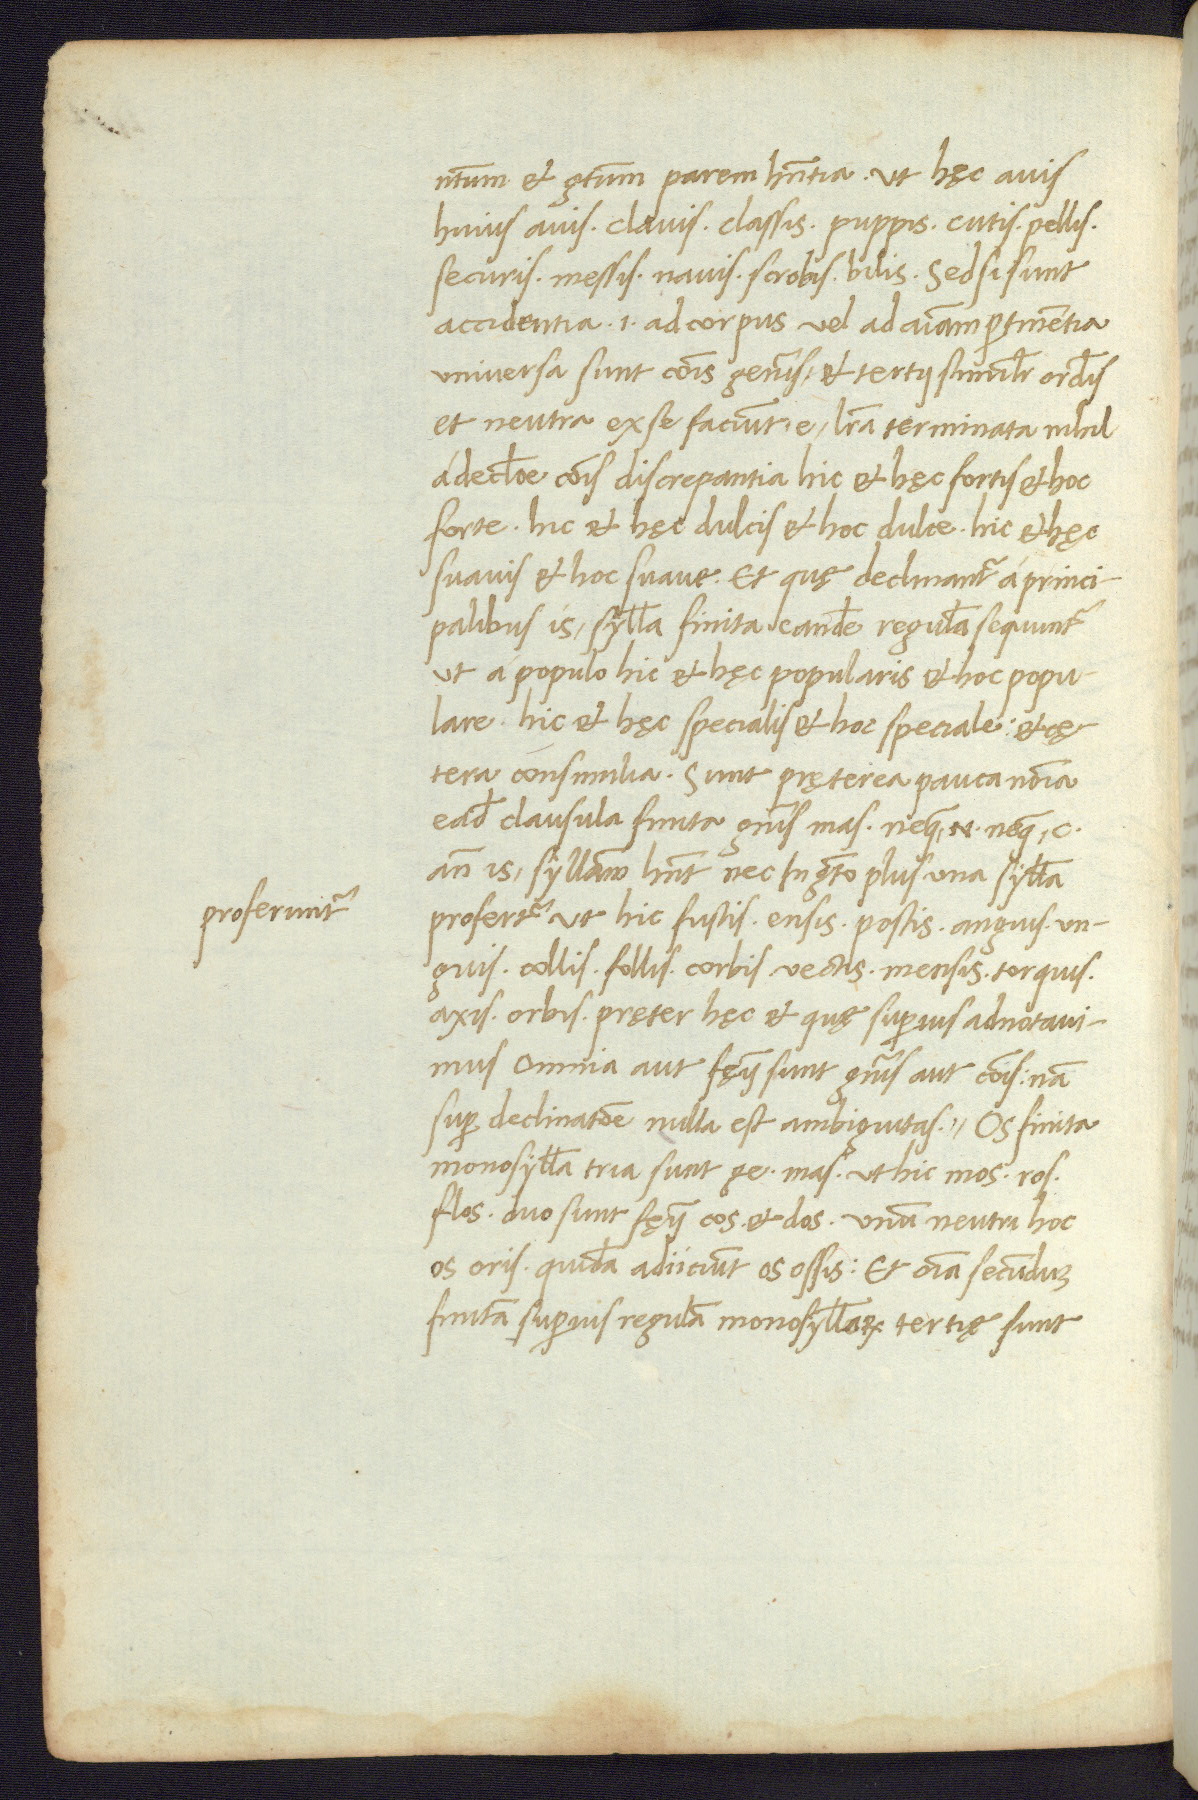 ntm̄um & gtm̄um parem hn̄tia. ut hęc avis
huius avis. clavis. classis. puppis. cutis. pellis.
securis. messis. navis. scrobis. bilis. Sed si sunt
accidentia .i. ad corpus vel ad aīam ꝑtinētia
universa sunt cōis genīs, & tertij simil̄r ord̄is
et neutra ex se faciūt, e, lr̄a terminata nihil
á decl̄oe cōis discrepantia hic & hęc fortis & hoc
forte. hic & hęc dulcis & hoc dulce. hic & hęc
suavis & hoc suave. Et quę declinant̄ á princi-
palibus is, syll̄a finita eandē regulā sequunt̄
ut á populo hic & hęc popularis & hoc popu-
lare. hic & hęc specialis & hoc speciale: & cę
tera consimilia. Sunt pręterea pauca nōia
ead̄ clausula finita gn̄is mas. neq̄, n. neq̄, c.
an̄ is, syllam hn̄t nec in gt̄o plus una syll̄a
profert̄ ut hic fustis. ensis. postis. anguis. un-
proferunt̄
guis. collis. follis. corbis. vectis. mensis. torquis.
axis. orbis. pręter hęc & quę suꝑius adnotavi-
mus omnia aut fęīj sunt gn̄is aut cōis: nā
suꝑ declinatōe nulla est ambiguitas., Os finita
monosyll̄a tria sunt ge. mas. ut hic mos. ros.
flos. duo sunt fęīj cos. & dos. unū neutri hoc
os oris. quidā adiiciūt os ossis: Et oīa secūduz
finitā suꝑius regulā monosyll̄aꝝ tertię sunt